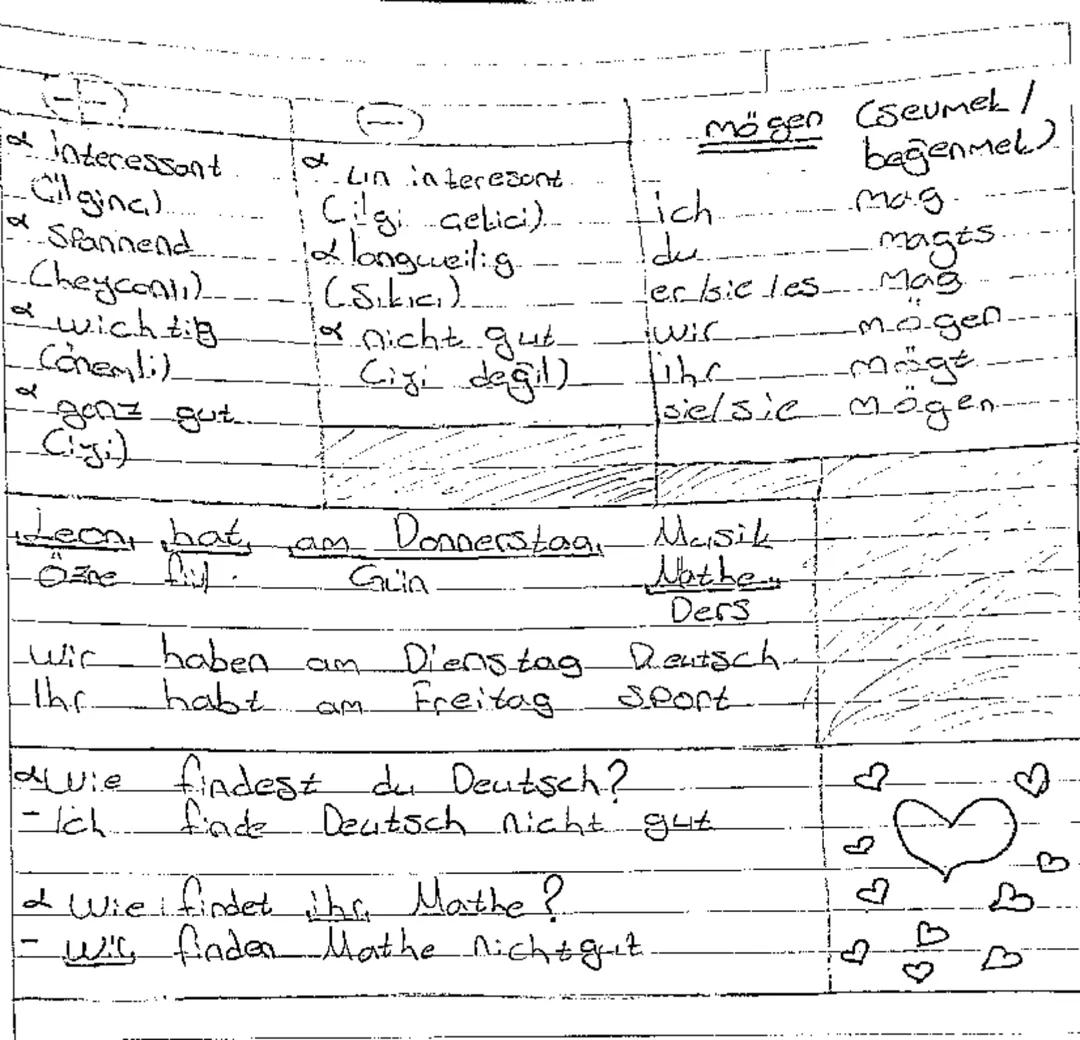 (+)
interessant
(ilginç)
spannend
(heycanlı)
wichtig
(önemli)
ganz gut
(iyi)
(-)
un interesant
(ilgi çekici)
langweilig
(sıkıcı)
nicht gut
(iyi değil)
mögen (sevmek /
beğenmek)
ich mag
du magts
er/sie/es mag
wir mögen
ihr mögt
sie/sie mögen
Leon hat am Donnerstag Musik
Özne fiil Gün Mathe
Ders
Wir haben am Dienstag Deutsch
Ihr habt am Freitag Sport
Wie findest du Deutsch?
- Ich finde Deutsch nicht gut
Wie findet ihr Mathe?
- Wir finden Mathe nicht gut